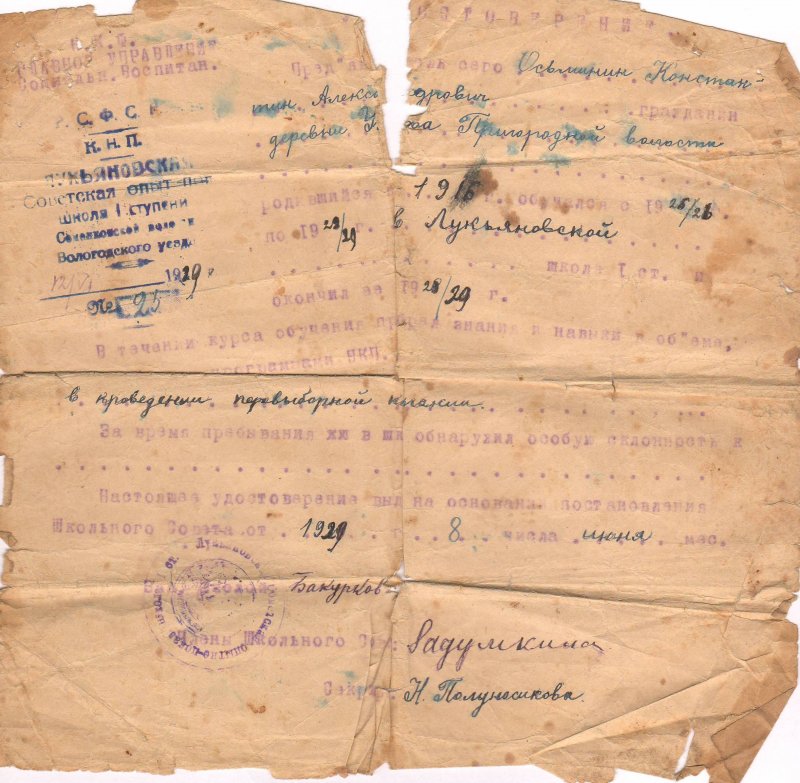 Н.К.П.
УПРАВЛЕНИЕ
Воспитан.
Р. С. Ф. С. Р.
К. Н. П.
ЛУКЬЯНОВСКАЯ
Советская опыт
школа I ступени
Вологодского уезда
12/VI 1929 г
№ 25
сего Осьминин Констан-
тин Александрович граждани
деревни Пригородной волости
родившийся 1916 г. обучался с 1925/26
по 1928/29 г. в Лукьяновской
школе I ст. и
окончил ее 1928/29 г.
В течении курса обучения знания и навыки в об"еме,
программами НКП.
в проведении перевыборной
За время пребывания в шк обнаружил особую склонность к
Настоящее удостоверение выд на основании постановления
Школьного Совета от 1929 г. 8 числа июня мес.
Бакурков
Члены Школьного Сов: Задумкина
Секр. Н. Полуносикова.